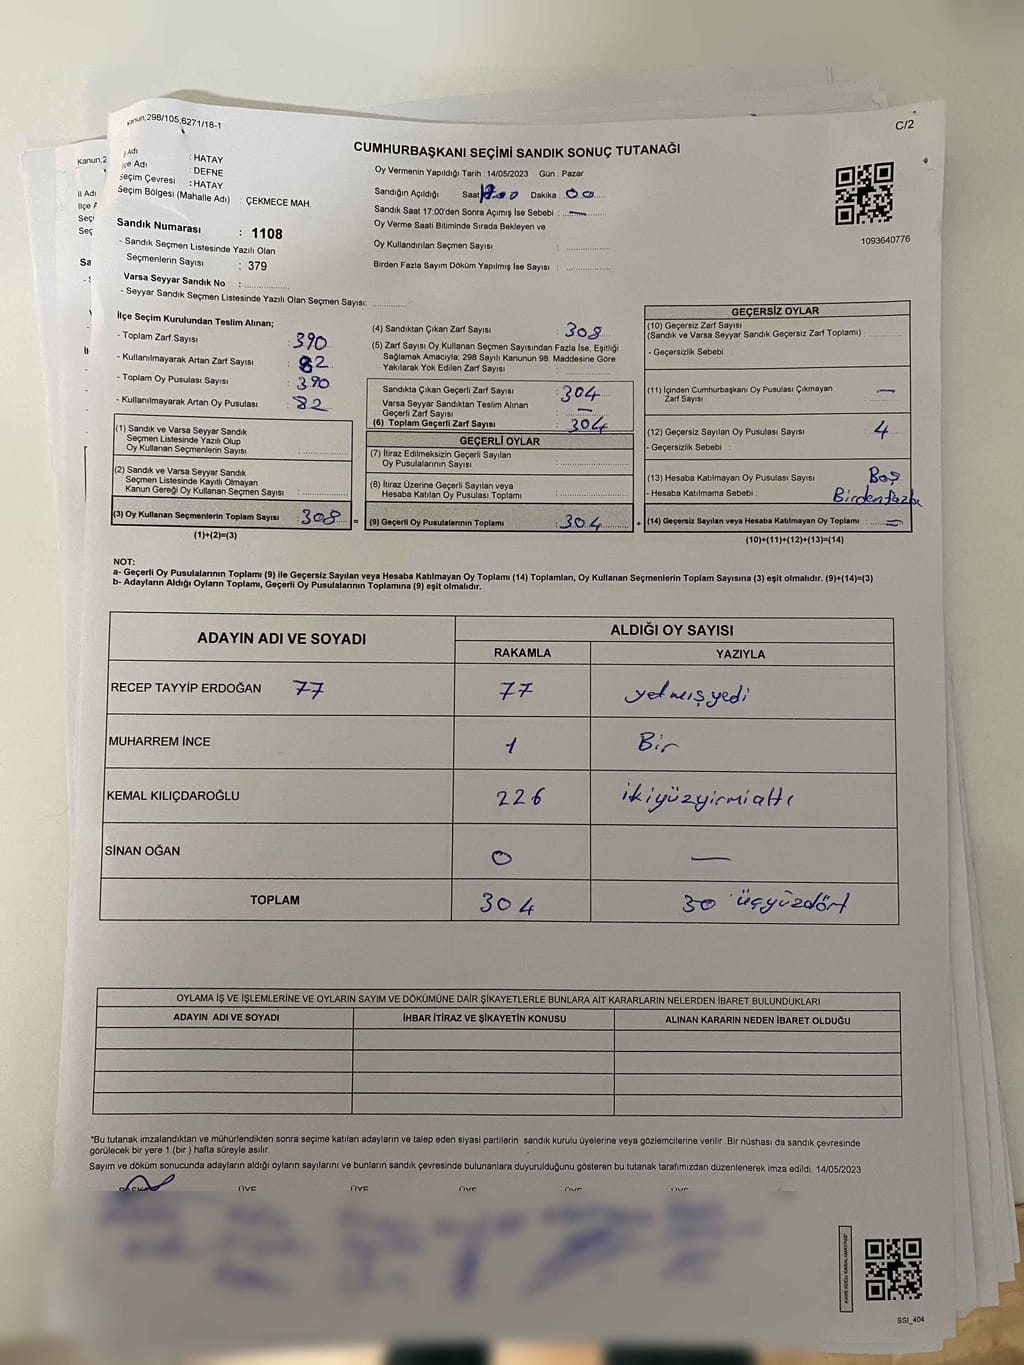 Kanun;298/105,6271/18-1
C/2
CUMHURBAŞKANI SEÇİMİ SANDIK SONUÇ TUTANAĞI
: HATAY
: DEFNE
Seçim Çevresi : HATAY
Seçim Bölgesi (Mahalle Adı) : ÇEKMECE MAH.
Sandık Numarası : 1108
- Sandık Seçmen Listesinde Yazılı Olan
Seçmenlerin Sayısı : 379
Varsa Seyyar Sandık No :
- Seyyar Sandık Seçmen Listesinde Yazılı Olan Seçmen Sayısı:
Oy Vermenin Yapıldığı Tarih : 14/05/2023 Gün : Pazar
Sandığın Açıldığı Saat Dakika : 00
Sandık Saat 17:00'den Sonra Açımış İse Sebebi : —
Oy Verme Saati Bitiminde Sırada Bekleyen ve
Oy Kullandırılan Seçmen Sayısı :
Birden Fazla Sayım Döküm Yapılmış İse Sayısı :
1093640776
İlçe Seçim Kurulundan Teslim Alınan;
- Toplam Zarf Sayısı : 390
- Kullanılmayarak Artan Zarf Sayısı : 82
- Toplam Oy Pusulası Sayısı : 390
- Kullanılmayarak Artan Oy Pusulası : 82
(1) Sandık ve Varsa Seyyar Sandık
Seçmen Listesinde Yazılı Olup
Oy Kullanan Seçmenlerin Sayısı :
(2) Sandık ve Varsa Seyyar Sandık
Seçmen Listesinde Kayıtlı Olmayan
Kanun Gereği Oy Kullanan Seçmen Sayısı :
(3) Oy Kullanan Seçmenlerin Toplam Sayısı : 308 =
(1)+(2)=(3)
(4) Sandıktan Çıkan Zarf Sayısı : 308
(5) Zarf Sayısı Oy Kullanan Seçmen Sayısından Fazla İse, Eşitliği
Sağlamak Amacıyla; 298 Sayılı Kanunun 98. Maddesine Göre
Yakılarak Yok Edilen Zarf Sayısı :
Sandıkta Çıkan Geçerli Zarf Sayısı : 304
Varsa Seyyar Sandıktan Teslim Alınan
Geçerli Zarf Sayısı : —
(6) Toplam Geçerli Zarf Sayısı : 304
GEÇERLİ OYLAR
(7) İtiraz Edilmeksizin Geçerli Sayılan
Oy Pusulalarının Sayısı :
(8) İtiraz Üzerine Geçerli Sayılan veya
Hesaba Katılan Oy Pusulası Toplamı :
(9) Geçerli Oy Pusulalarının Toplamı : 304 +
GEÇERSİZ OYLAR
(10) Geçersiz Zarf Sayısı
(Sandık ve Varsa Seyyar Sandık Geçersiz Zarf Toplamı) :
- Geçersizlik Sebebi
(11) İçinden Cumhurbaşkanı Oy Pusulası Çıkmayan
Zarf Sayısı : —
(12) Geçersiz Sayılan Oy Pusulası Sayısı : 4
- Geçersizlik Sebebi :
(13) Hesaba Katılmayan Oy Pusulası Sayısı : Boş
- Hesaba Katılmama Sebebi : Birdenfazla
(14) Geçersiz Sayılan veya Hesaba Katılmayan Oy Toplamı : =
(10)+(11)+(12)+(13)=(14)
NOT:
a- Geçerli Oy Pusulalarının Toplamı (9) ile Geçersiz Sayılan veya Hesaba Katılmayan Oy Toplamı (14) Toplamları, Oy Kullanan Seçmenlerin Toplam Sayısına (3) eşit olmalıdır. (9)+(14)=(3)
b- Adayların Aldığı Oyların Toplamı, Geçerli Oy Pusulalarının Toplamına (9) eşit olmalıdır.
ADAYIN ADI VE SOYADI ALDIĞI OY SAYISI
RAKAMLA YAZIYLA
RECEP TAYYİP ERDOĞAN 77 77 yetmişyedi
MUHARREM İNCE 1 Bir
KEMAL KILIÇDAROĞLU 226 ikiyüzyirmialtı
SİNAN OĞAN 0 —
TOPLAM 304 30 üçyüzdört
OYLAMA İŞ VE İŞLEMLERİNE VE OYLARIN SAYIM VE DÖKÜMÜNE DAİR ŞİKAYETLERLE BUNLARA AİT KARARLARIN NELERDEN İBARET BULUNDUKLARI
ADAYIN ADI VE SOYADI İHBAR İTİRAZ VE ŞİKAYETİN KONUSU ALINAN KARARIN NEDEN İBARET OLDUĞU
*Bu tutanak imzalandıktan ve mühürlendikten sonra seçime katılan adayların ve talep eden siyasi partilerin sandık kurulu üyelerine veya gözlemcilerine verilir .Bir nüshası da sandık çevresinde
görülecek bir yere 1 (bir ) hafta süreyle asılır.
Sayım ve döküm sonucunda adayların aldığı oyların sayılarını ve bunların sandık çevresinde bulunanlara duyurulduğunu gösteren bu tutanak tarafımızdan düzenlenerek imza edildi. 14/05/2023
BAŞKAN ÜYE ÜYE ÜYE ÜYE ÜYE
SSI_404